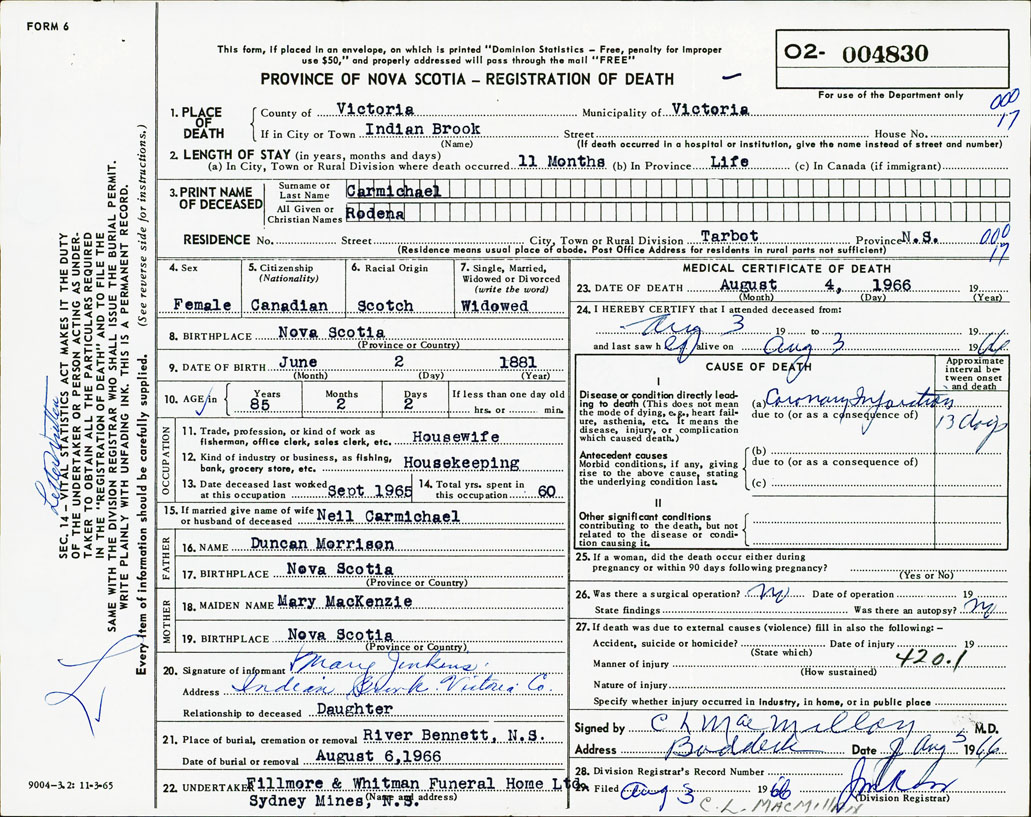 FORM 6
This form, if placed in an envelope, on which is printed "Dominion Statistics – Free, penalty for improper
use $50," and properly addressed will pass through the mail "FREE"
PROVINCE OF NOVA SCOTIA – REGISTRATION OF DEATH
02- 004830
For use of the Department only
000
17
1. PLACE OF DEATH
County of Victoria Municipality of Victoria
If in City or Town Indian Brook Street House No.
(Name) (If death occurred in a hospital or institution, give the name instead of street and number)
2. LENGTH OF STAY (in years, months and days)
(a) In City, Town or Rural Division where death occurred 11 Months (b) In Province Life (c) In Canada (if immigrant)
3. PRINT NAME OF DECEASED
Surname or Last Name Carmichael
All Given or Christian Names Rodena
RESIDENCE No. Street City, Town or Rural Division Tarbot Province N.S.
(Residence means usual place of abode. Post Office Address for residents in rural parts not sufficient)
000
17
4. Sex
Female
5. Citizenship
(Nationality)
Canadian
6. Racial Origin
Scotch
7. Single, Married,
Widowed or Divorced
(write the word)
Widowed
8. BIRTHPLACE Nova Scotia
(Province or Country)
9. DATE OF BIRTH June 2 1881
(Month) (Day) (Year)
10. AGE in Years 85 Months 2 Days 2 If less than one day old
hrs. or min.
OCCUPATION
11. Trade, profession, or kind of work as
fisherman, office clerk, sales clerk, etc. Housewife
12. Kind of industry or business, as fishing,
bank, grocery store, etc. Housekeeping
13. Date deceased last worked
at this occupation Sept 1965
14. Total yrs. spent in
this occupation 60
15. If married give name of wife
or husband of deceased Neil Carmichael
FATHER
16. NAME Duncan Morrison
17. BIRTHPLACE Nova Scotia
(Province or Country)
MOTHER
18. MAIDEN NAME Mary MacKenzie
19. BIRTHPLACE Nova Scotia
(Province or Country)
20. Signature of informant Mary Jenkins
Address Indian Brook Victoria Co.
Relationship to deceased Daughter
21. Place of burial, cremation or removal River Bennett, N.S.
Date of burial or removal August 6,1966
22. UNDERTAKER Fillmore & Whitman Funeral Home Ltd.
Sydney Mines, N.S.
(Name and address)
MEDICAL CERTIFICATE OF DEATH
23. DATE OF DEATH August 4, 1966 19
(Month) (Day) (Year)
24. I HEREBY CERTIFY that I attended deceased from:
Aug 3 19 to 19
and last saw h er alive on Aug 3 1966
CAUSE OF DEATH
Approximate
interval be-
tween onset
and death
I
Disease or condition directly lead-
ing to death (This does not mean
the mode of dying, e.g., heart fail-
ure, asthenia, etc. It means the
disease, injury, or complication
which caused death.)
(a) Coronary Infarction
due to (or as a consequence of)
13 days
Antecedent causes
Morbid conditions, if any, giving
rise to the above cause, stating
the underlying condition last.
(b)
due to (or as a consequence of)
(c)
II
Other significant conditions
contributing to the death, but not
related to the disease or condi-
tion causing it.
25. If a woman, did the death occur either during
pregnancy or within 90 days following pregnancy?
(Yes or No)
26. Was there a surgical operation? no Date of operation 19
State findings Was there an autopsy? no
27. If death was due to external causes (violence) fill in also the following: –
Accident, suicide or homicide? Date of injury 19
(State which)
420.1
Manner of injury
(How sustained)
Nature of injury
Specify whether injury occurred in industry, in home, or in public place
Signed by C L MacMillan M.D.
Address Baddeck Date Aug 5 1966
28. Division Registrar's Record Number
29. Filed Aug 3 1966
(Division Registrar)
C. L. MACMILLAN
SEC. 14 – VITAL STATISTICS ACT MAKES IT THE DUTY
OF THE UNDERTAKER OR PERSON ACTING AS UNDER-
TAKER TO OBTAIN ALL THE PARTICULARS REQUIRED
IN THE "REGISTRATION OF DEATH" AND TO FILE THE
SAME WITH THE DIVISION REGISTRAR WHO SHALL ISSUE THE BURIAL PERMIT.
WRITE PLAINLY WITH UNFADING INK. THIS IS A PERMANENT RECORD.
Every item of information should be carefully supplied. (See reverse side for instructions.)
9004-3.2: 11-3-65